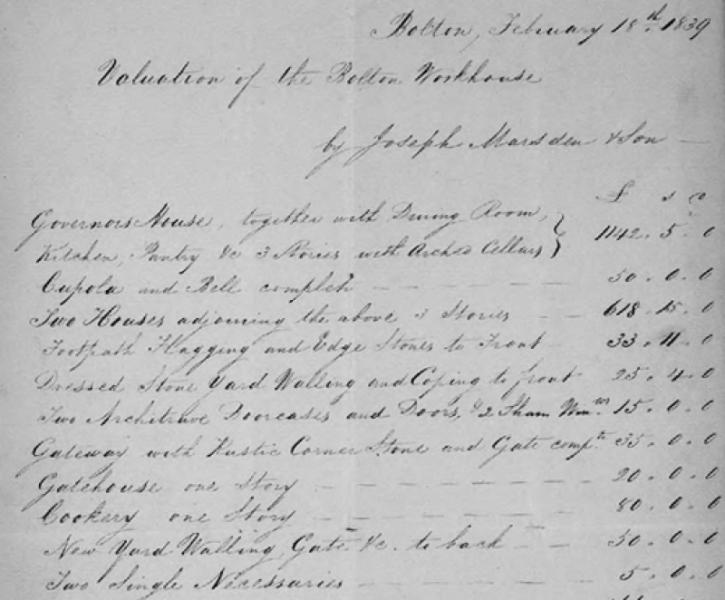 Bolton, February 18th 1839
Valuation of the Bolton Workhouse
by Joseph Marsden & Son
£ s d
Governors House, together with Dining Room,
Kitchen, Pantry &c 3 Stories with Arched Cellars } 1142. 5. 0
Cupola and Bell complete — — — — 50. 0. 0
Two Houses adjoining the above 3 Stories — — 618. 15. 0
Footpath Flagging and Edge Stones to Front 33. 11. 0
Dressed Stone Yard Walling and Coping to front 25. 4. 0
Two Architrave Doorcases and Doors, & 2 Sham Winws 15. 0. 0
Gateway with Rustic Corner Stone and Gate compte 35. 0. 0
Gatehouse one Story — — — — 20. 0. 0
Cookery one Story — — — — 80. 0. 0
New Yard Walling, Gate &c. to back — — 50. 0. 0
Two Single Necessaries — — — — 5. 0. 0